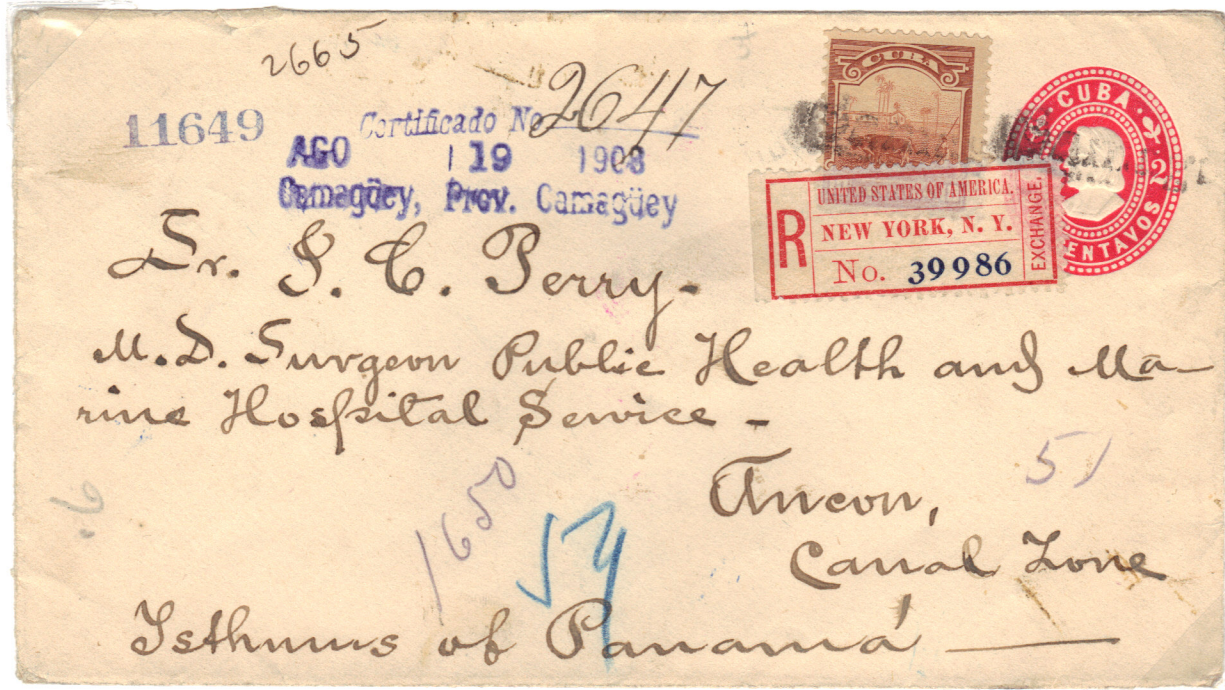 2665
11649
Certificado No 2647
AGO 19 1908
Camagüey, Prov. Camagüey
CUBA
CUBA
2
CENTAVOS
R
UNITED STATES OF AMERICA.
NEW YORK, N. Y.
No. 39986
EXCHANGE.
Sr. J. C. Perry-
M.D. Surgeon Public Health and Ma-
rine Hospital Service -
Ancon,
51
1650
Canal Zone
Isthmus of Panamá